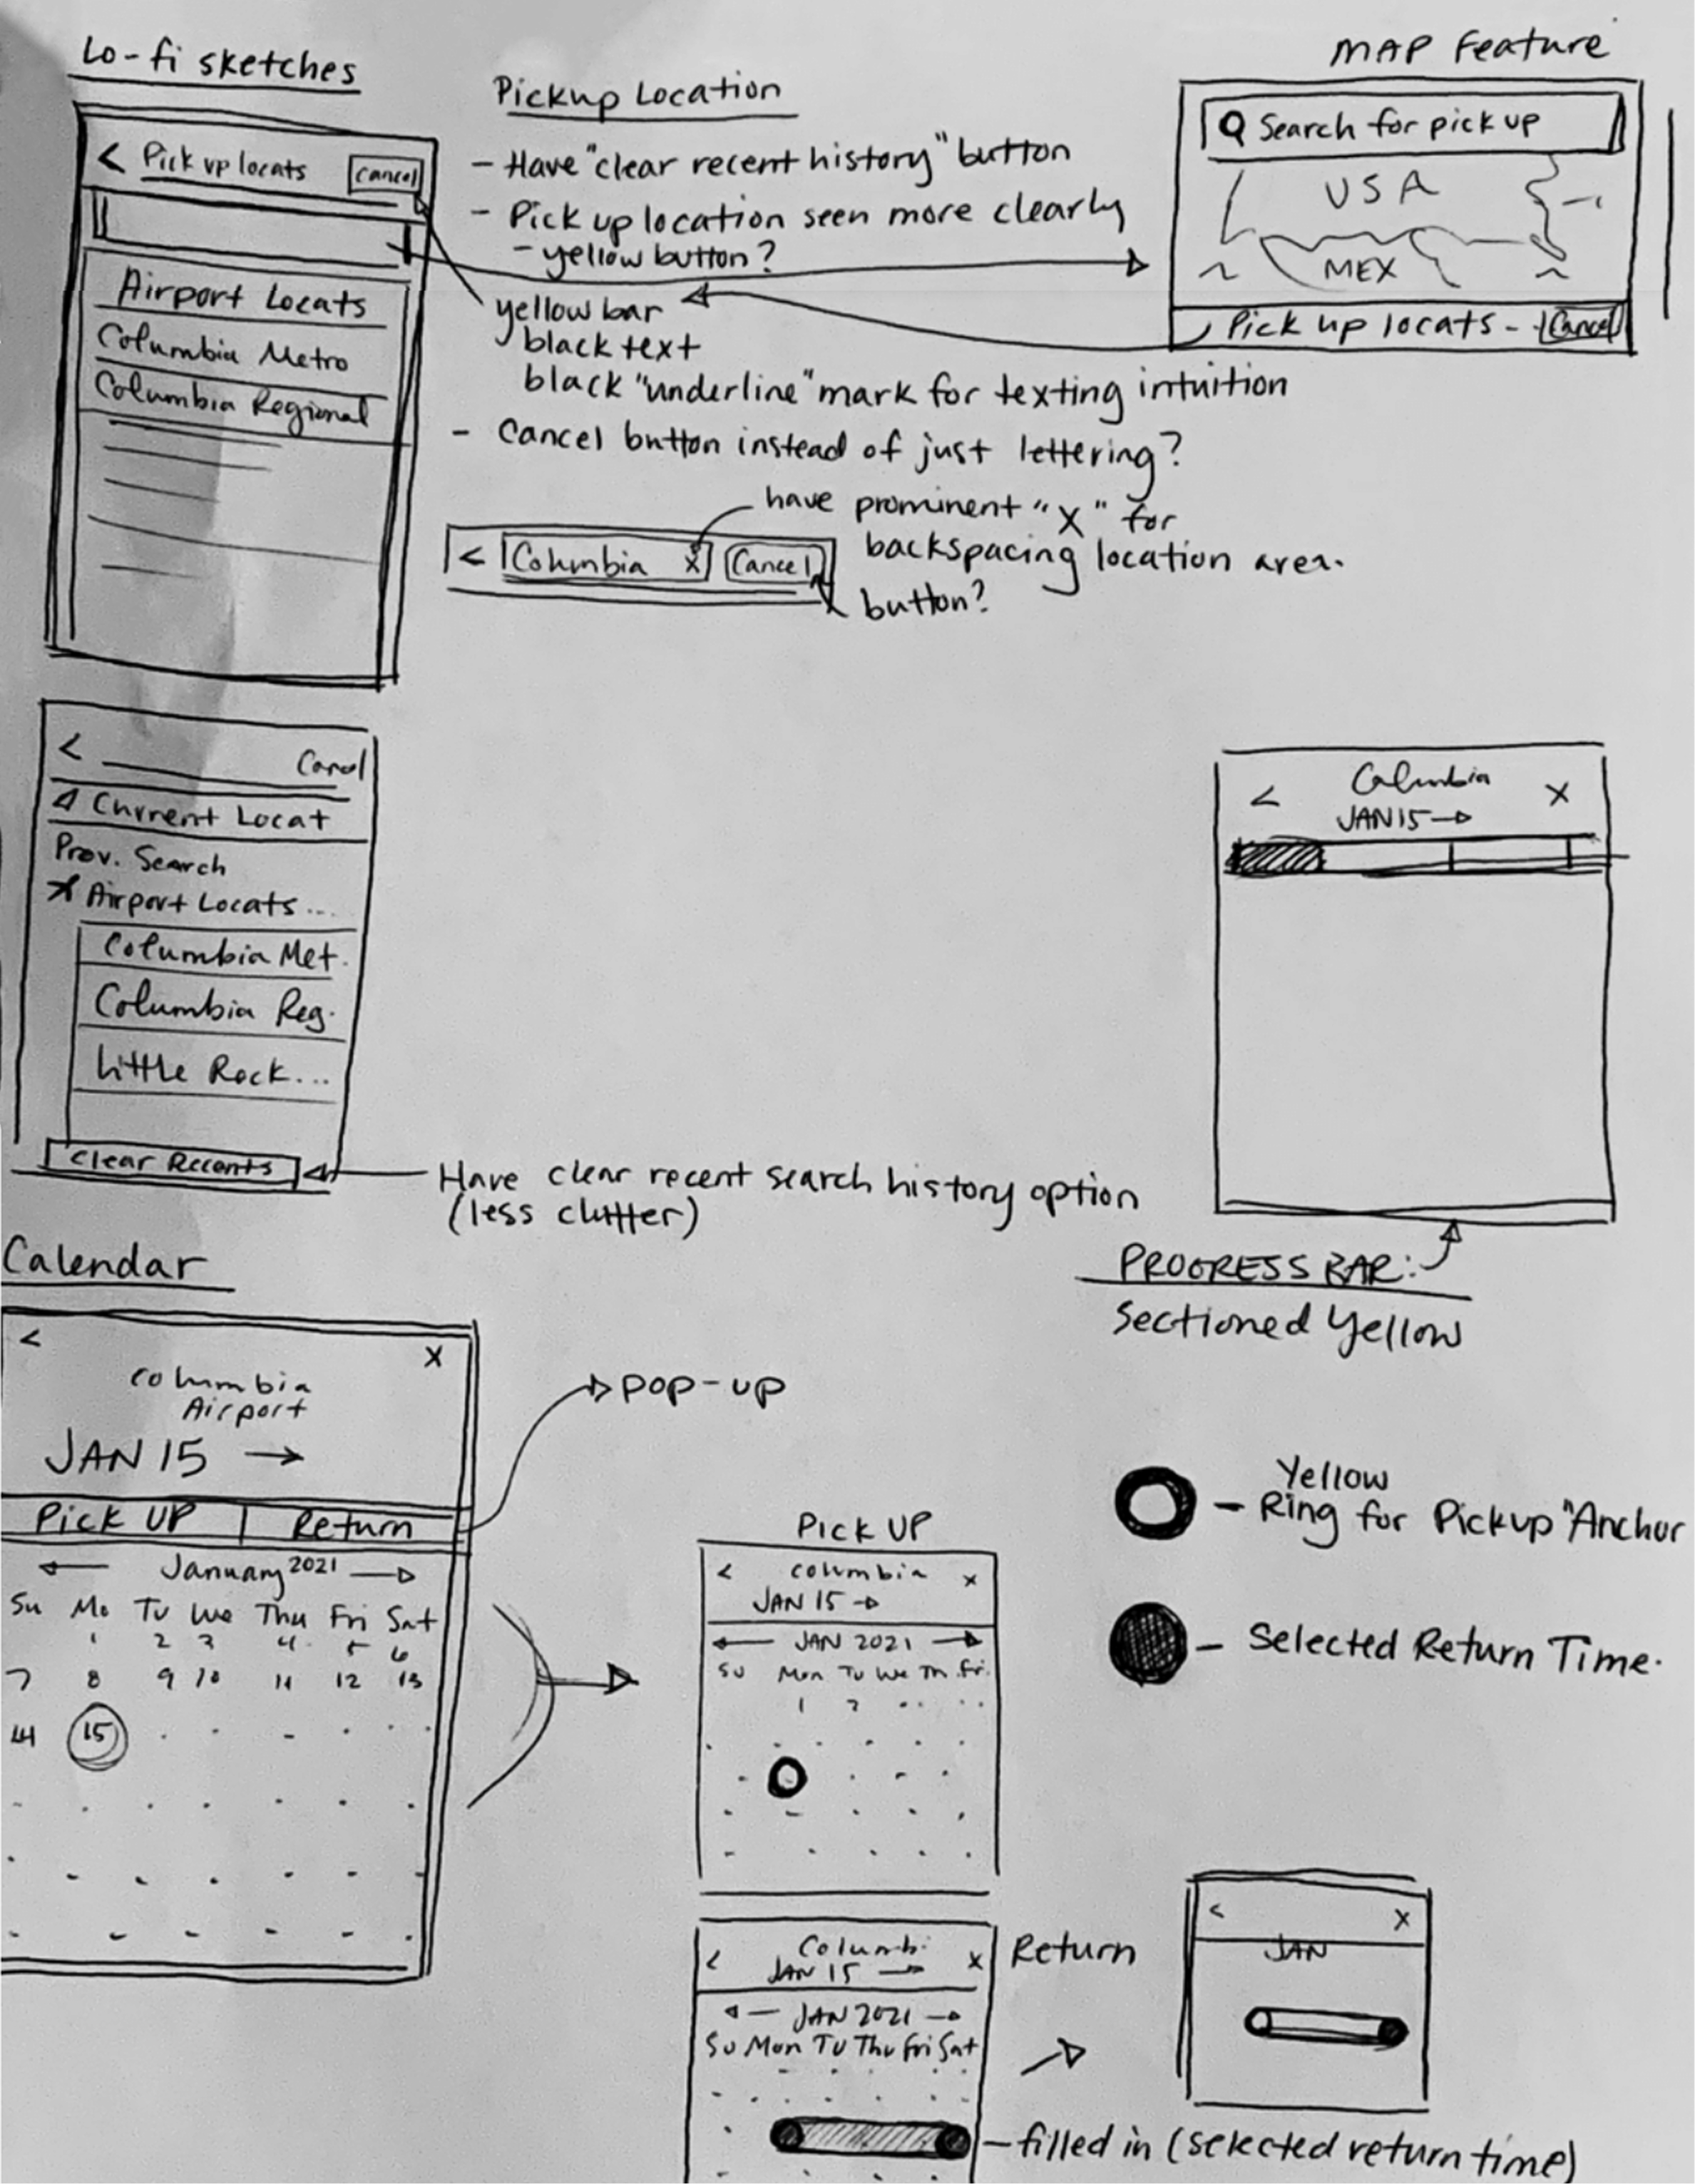 Lo-fi sketches
< Pick up locats Cancel
Airport Locats
Columbia Metro
Columbia Regional
Pickup Location
- Have "clear recent history" button
- Pick up location seen more clearly
- yellow button?
yellow bar
black text
black "underline" mark for texting intuition
- Cancel button instead of just lettering?
have prominent "X" for
backspacing location area.
< Columbia X Cancel
button?
MAP Feature
Search for pick up
USA
MEX
Pick up locats - Cancel
<
Current Locat
Prev. Search
Airport Locats ...
Columbia Met.
Columbia Reg.
Little Rock...
Clear Recents
Have clear recent search history option
(less clutter)
< Columbia X
JAN 15 →
PROGRESS BAR:
Sectioned Yellow
Calendar
< X
Columbia
Airport
JAN 15 →
Pick UP Return
← January 2021 →
Su Mo Tu We Thu Fri Sat
1 2 3 4 5 6
7 8 9 10 11 12 13
14 15
→ POP-UP
PICK UP
< columbia x
JAN 15 →
← JAN 2021 →
Su Mon Tu We Th Fri
1 2
Yellow
- Ring for Pickup "Anchor
- Selected Return Time.
Return
< Columbi X
JAN 15 →
← JAN 2021 →
Su Mon Tu Thu Fri Sat
- filled in (selected return time)
< X
JAN